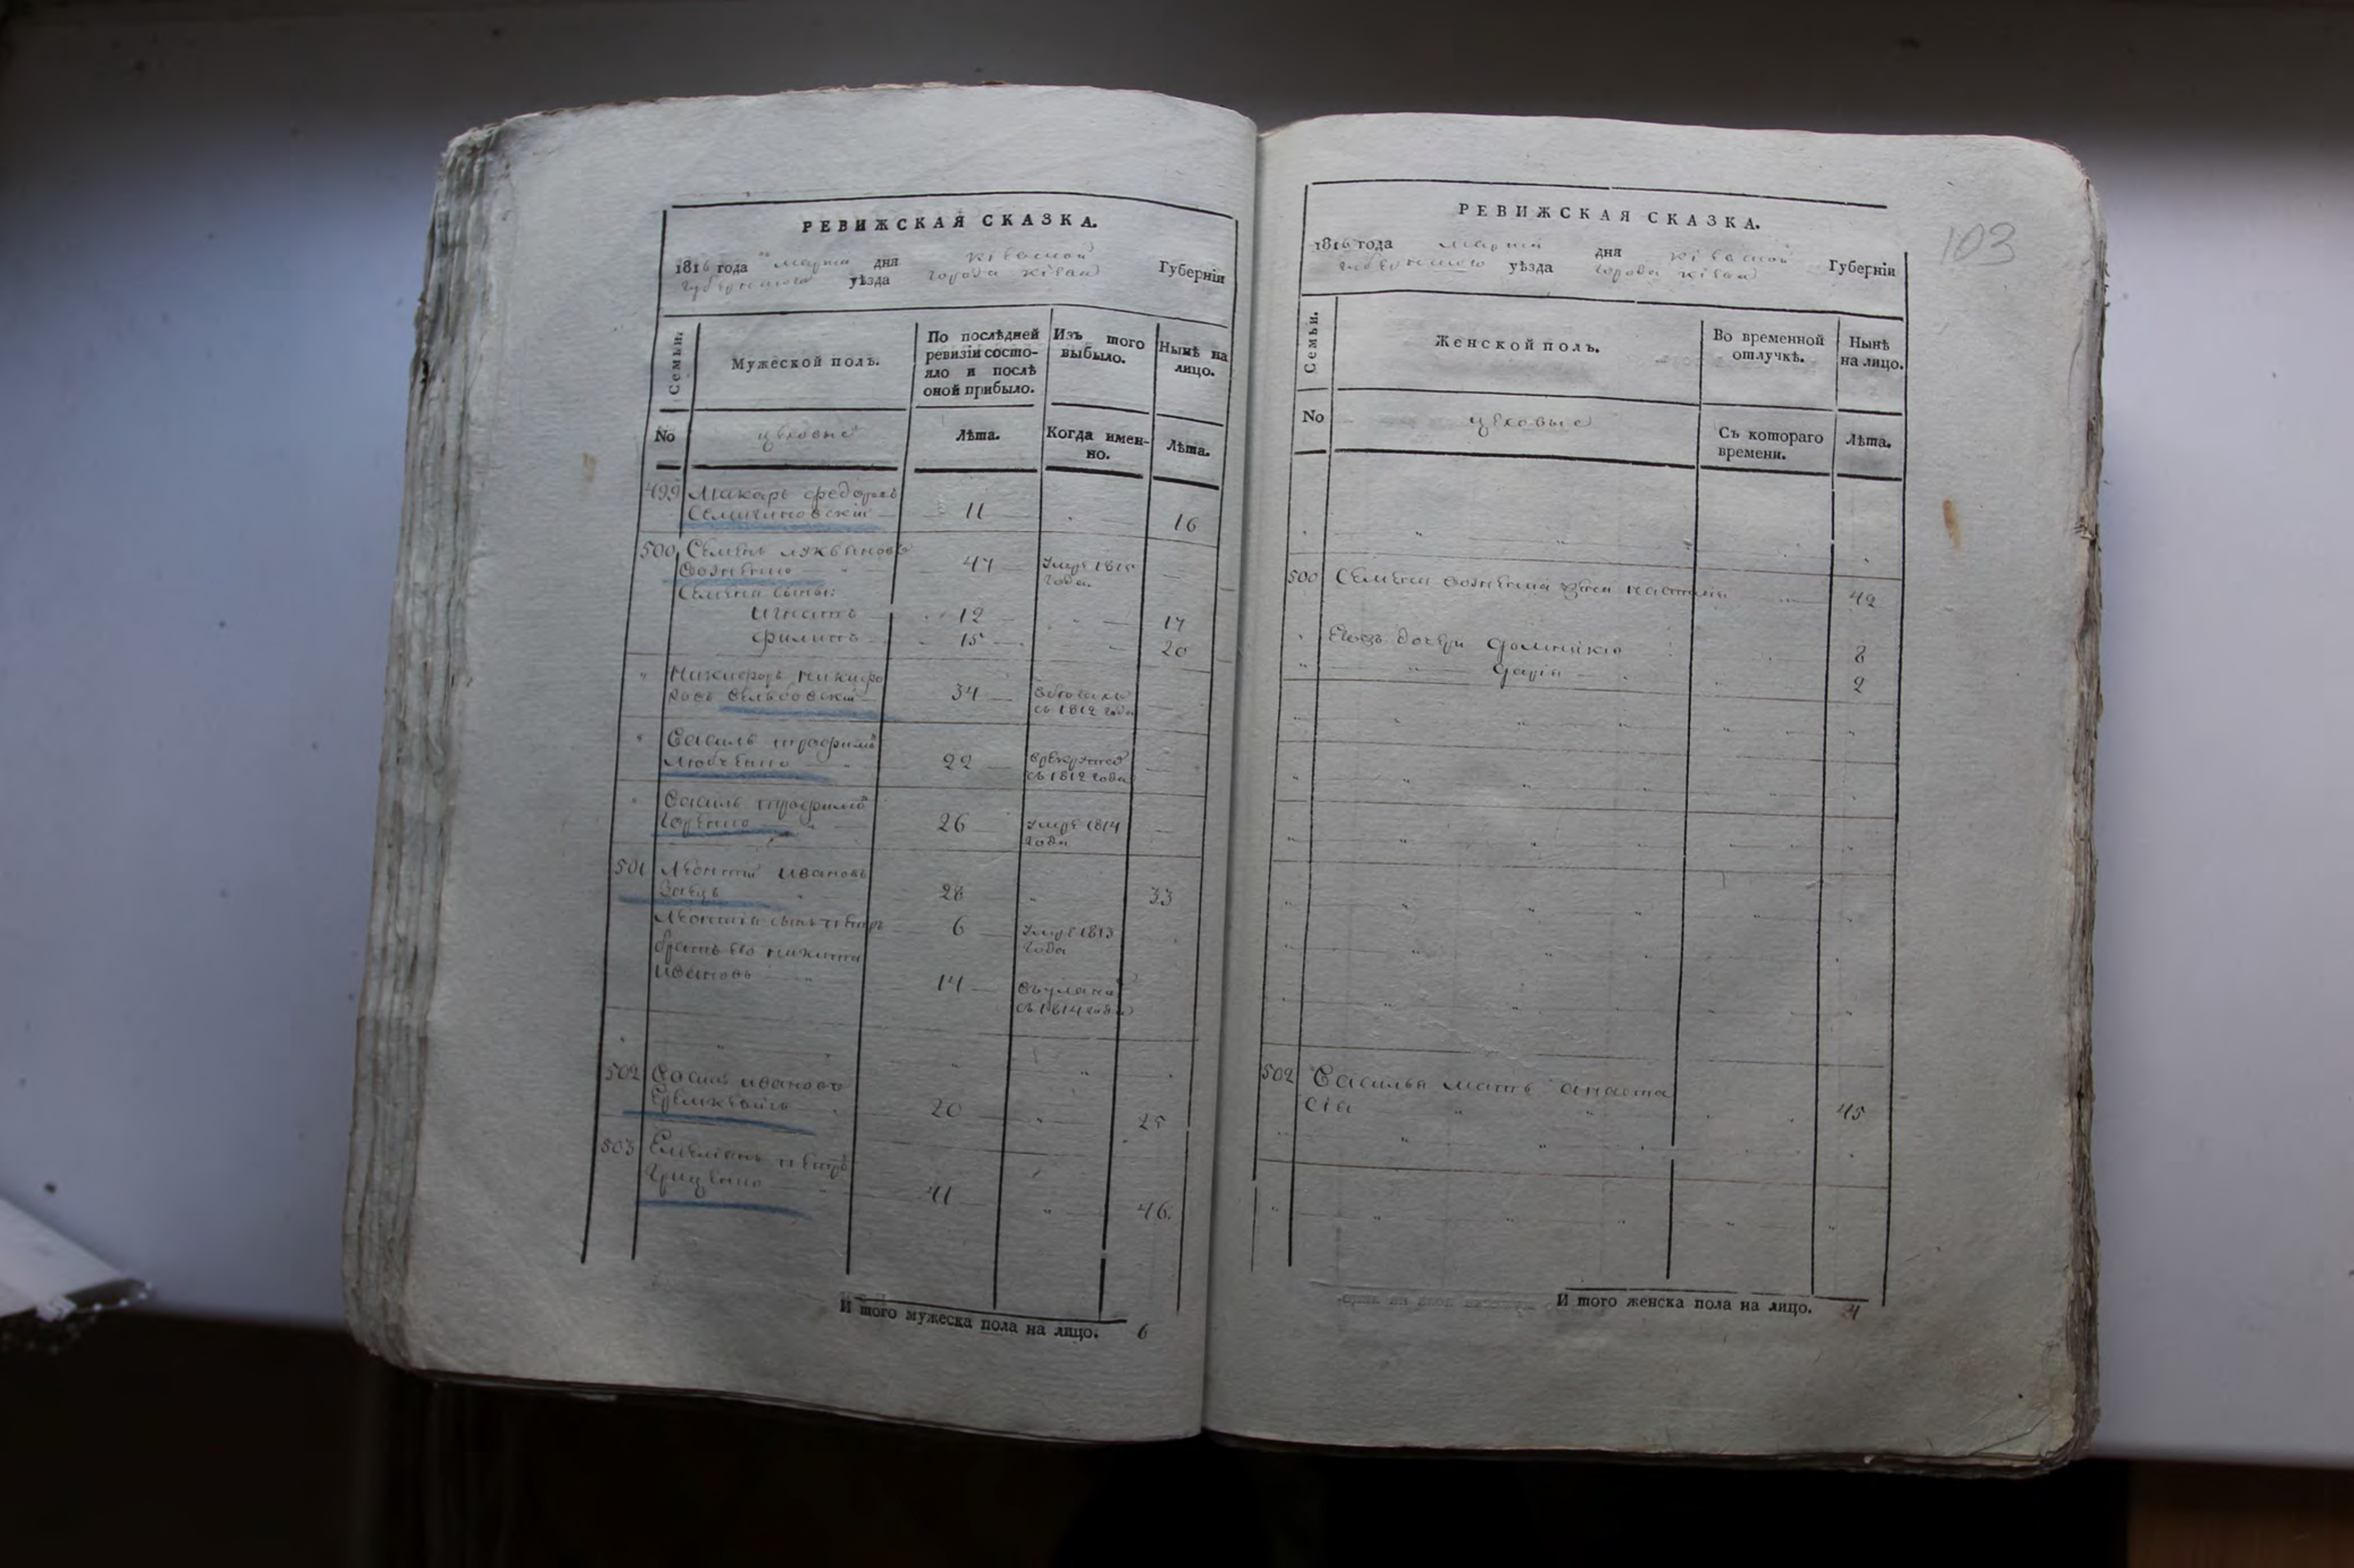 РЕВИЖСКАЯ СКАЗКА.
1816 года марта дня Кіевской Губерніи
Губернского уѣзда города Кіева
Семьи.
Мужеской полъ.
По послѣдней ревизіи состояло и послѣ оной прибыло.
Изъ того выбыло.
Нынѣ на лицо.
No
цеховые
Лѣта.
Когда имен-но.
Лѣта.
499 Макаръ Федоровъ
11 16
500 Семенъ
47 Умре 1815
года.
Семена сыны:
Игнатъ 12 17
Филипъ 15 20
Никифоръ Никифо
ровъ 34
съ 1812 года
Василь Трофимовъ
Любченко 22
съ 1812 года
Василь Трофимовъ
26 Умре 1814
года
501 Леонтій Ивановъ
Заецъ 28 33
Леонтія сынъ Петръ 6 Умре 1813
года
братъ его Никита
Ивановъ 14
съ 1814 года
502 Василь Ивановъ
20 25
503 Емеліянъ Петровъ
Гриценко 41 46.
И того мужеска пола на лицо. 6
103
РЕВИЖСКАЯ СКАЗКА.
1816 года марта дня Кіевской Губерніи
Губернского уѣзда города Кіева
Семьи.
Женской полъ.
Во временной отлучкѣ.
Нынѣ на лицо.
No
цеховые
Съ котораго времени.
Лѣта.
500 Семена жена 42
дочери 8
Дарія 2
502 Василья мать Анаста
сія 45
И того женска пола на лицо. 4